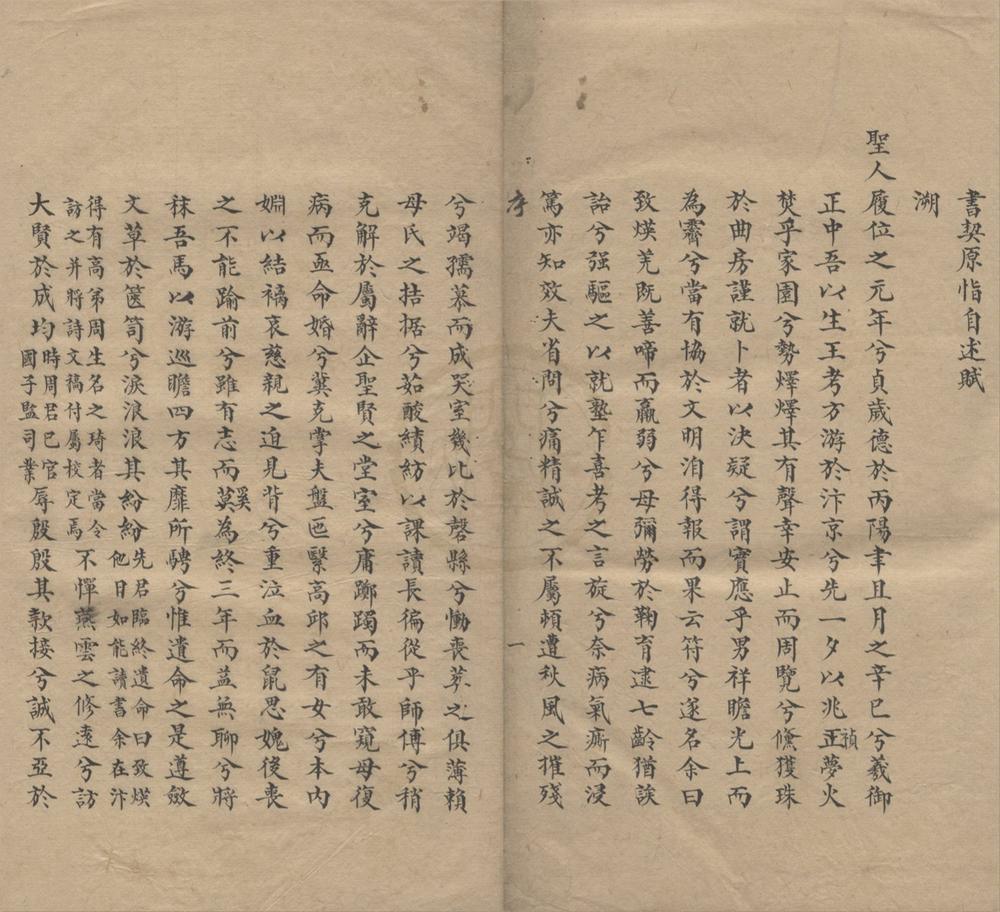 書契原恉自述賦
溯
聖人履位之元年兮貞歲德於丙陽聿且月之辛巳兮羲御
正中吾以生王考方游於汴京兮先一夕以兆正禎夢火
焚乎家園兮勢燡燡其有聲幸安止而周覽兮儵獲珠
於曲房謹就卜者以決疑兮謂寶應乎男祥瞻光上而
為霽兮當有協於文明洎得報而果云符兮遂名余曰
致煐羌既善啼而羸弱兮母彌勞於鞠育逮七齡猶誒
詒兮强驅之以就塾乍喜考之言旋兮奈病氣㾷而浸
篤亦知效夫省問兮痛精誠之不屬頻遭秋風之摧殘
序 一
兮竭孺慕而成哭室幾比於磬縣兮慟喪葬之俱薄賴
母氏之拮据兮茹酸績紡以課讀長徧從乎師傅兮稍
克解於屬辭企聖賢之堂室兮庸躑躅而未敢窺母復
病而亟命婚兮冀克掌夫盤匜繄高邱之有女兮本內
婣以結褵哀慈親之迫見背兮重泣血於鼠思媿後喪
之不能踰前兮雖有志而莫奚為終三年而益無聊兮將
秣吾馬以游巡瞻四方其靡所騁兮惟遺命之是遵斂
文草於篋笥兮淚浪浪其紛紛先君臨終遺命曰致煐他日如能讀書余在汴
得有高弟周生名之琦者當令訪之并將詩文稿付屬校定焉不憚燕雲之修遠兮訪
大賢於成均時周君已官國子監司業辱殷殷其款接兮誠不亞於